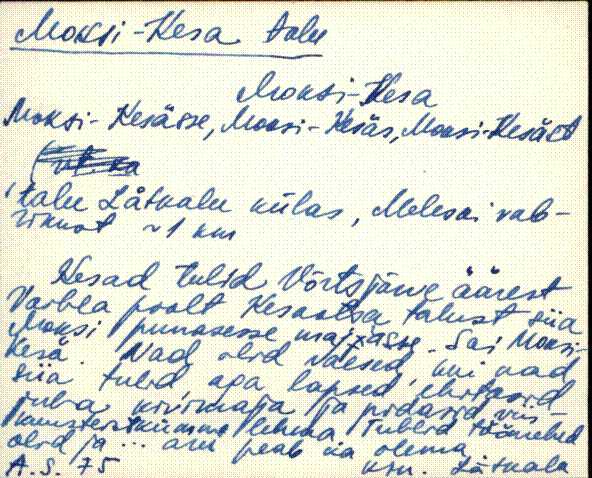 Moksi-Kesa talu
Moksi-Kesa
Moksi-Kesässe, Moksi-Kesäs, Moksi-Kesäst
talu Lätkalu külas, Meleski vab-
rikust ~1 km
Kesad tulid Võrtsjärve äärest
Varbla poolt Kesaotsa talust siia
Moksi punasesse majasse. Sai Moksi-
Kesä. Nad olid vaesed, kui nad
siia tulid aga lapsed, ehitasid
juba kivimaja ja pidasid viis-
kümmend lehma. Tublid töömehed
olid ja ... aru peab ka olema
A.S. 75 ksn. Lätkalu